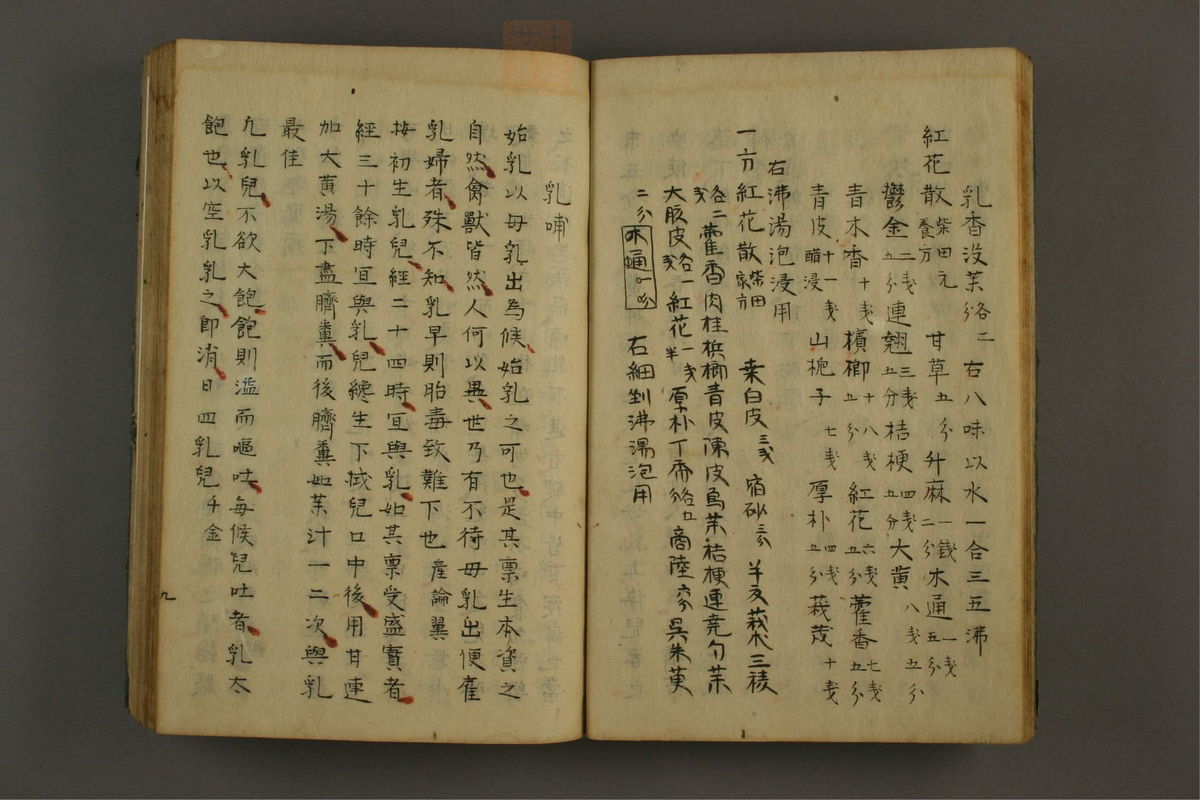 乳香没茉各二分 右八味以水一合三五沸
紅花散 柴田元養方 甘草五分 升麻一戔二分 木通一戔五分
鬱金二戔五分 連翹三戔五分 桔梗四戔五分 大黄八戔五分
青木香十戔 檳榔十八戔五分 紅花六戔五分 藿香七戔五分
青皮十一戔醋浸 山梔子七戔 厚朴四戔五分 莪茂十戔
右沸湯泡浸用
一方紅花散 柴田家方 桒白皮三戔 宿砂三分 羊支 莪朮 三稜
各二戔 藿香 肉桂 梹榔 青皮 陳皮 烏茉 桔梗 連尭 勺茉
大腹皮各一戔 紅花一戔半 原朴 丁香各五分 商陸 麥 呉朱萸
二分 木通一分 右細剉沸湯泡用
乳哺
始乳以母乳出為候始乳之可也是其禀生本資之
自然禽獸皆然人何以異世乃有不待母乳出便雇
乳婦者殊不知乳早則胎毒致難下也 産論翼
按初生乳兒經二十四時宜與乳如其禀受盛實者
經三十餘時宜與乳兒纔生下拭兒口中後用甘連
加大黄湯下盡臍糞而後臍糞如茉汁一二次與乳
最佳
凢乳兒不欲大飽飽則溢而嘔吐每候兒吐者乳太
飽也以空乳乳之即消日四乳兒 千金
九